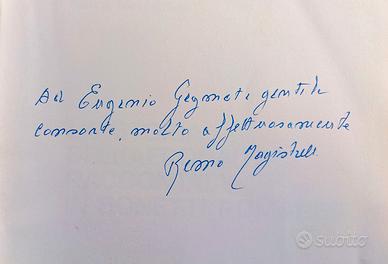 Ad Eugenio Gegmati gentile
consorte, molto affettuosamente
Remo Magistrelli
subito